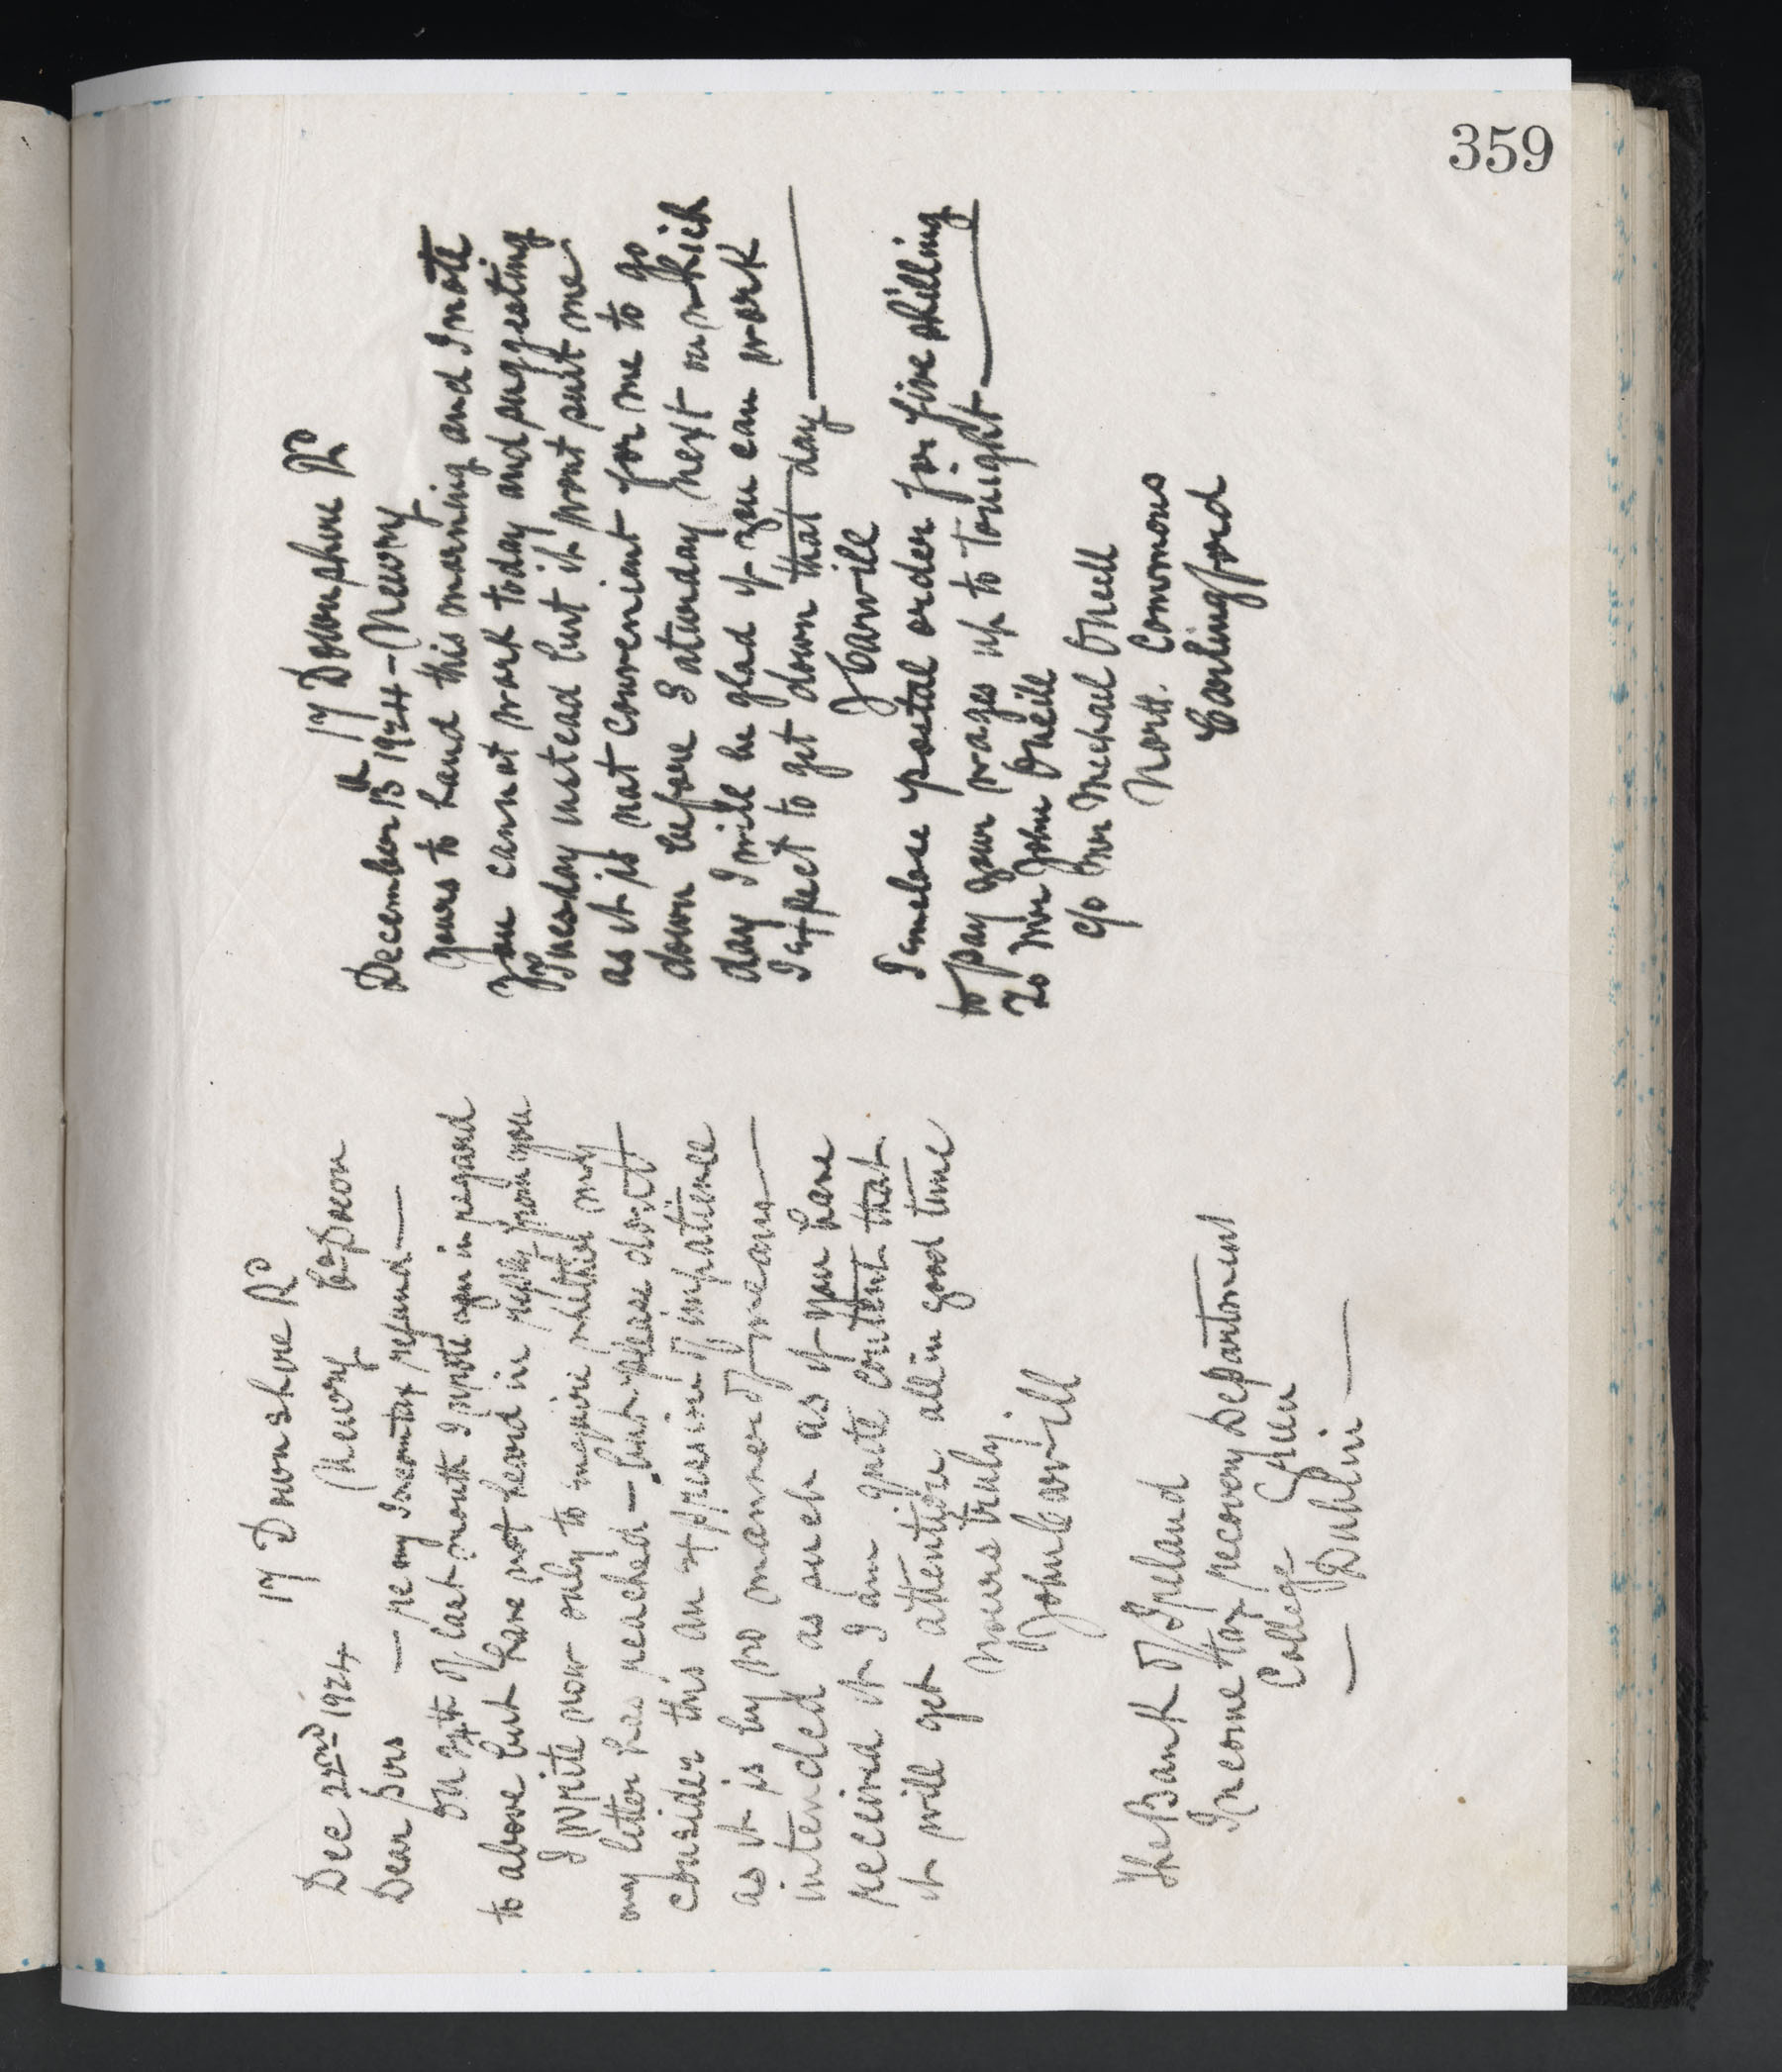 359
17 Downshire Rd
Dec 22nd 1924 Newry Co Down
Dear Sirs — re my Income tax refund —
On 24th of last month I wrote again in regard
to above but have not heard in reply from you
I write now only to inquire whether my
my letter has reached — but please don't
consider this an expression of impatience
as it is by no manner of means —
intended as such as if you have
received it I am quite content that
it will get attention all in good time
Yours truly
John Carvill
The Bank of Ireland
Income tax recovery Department
College Green
— Dublin —
17 Downshire Rd
December 13th 1924 — Newry
Yours to hand this morning and I note
you cannot work today and suggesting
Tuesday instead but it wont suit me
as it is not convenient for me to go
down before Saturday next on which
day I will be glad if you can work
I expect to get down that day —
J Carvill
I enclose postal order for five shilling
to pay your wages up to tonight —
To Mr John Oneill
c/o Mr Michael Oneill
North Commons
Carlingford